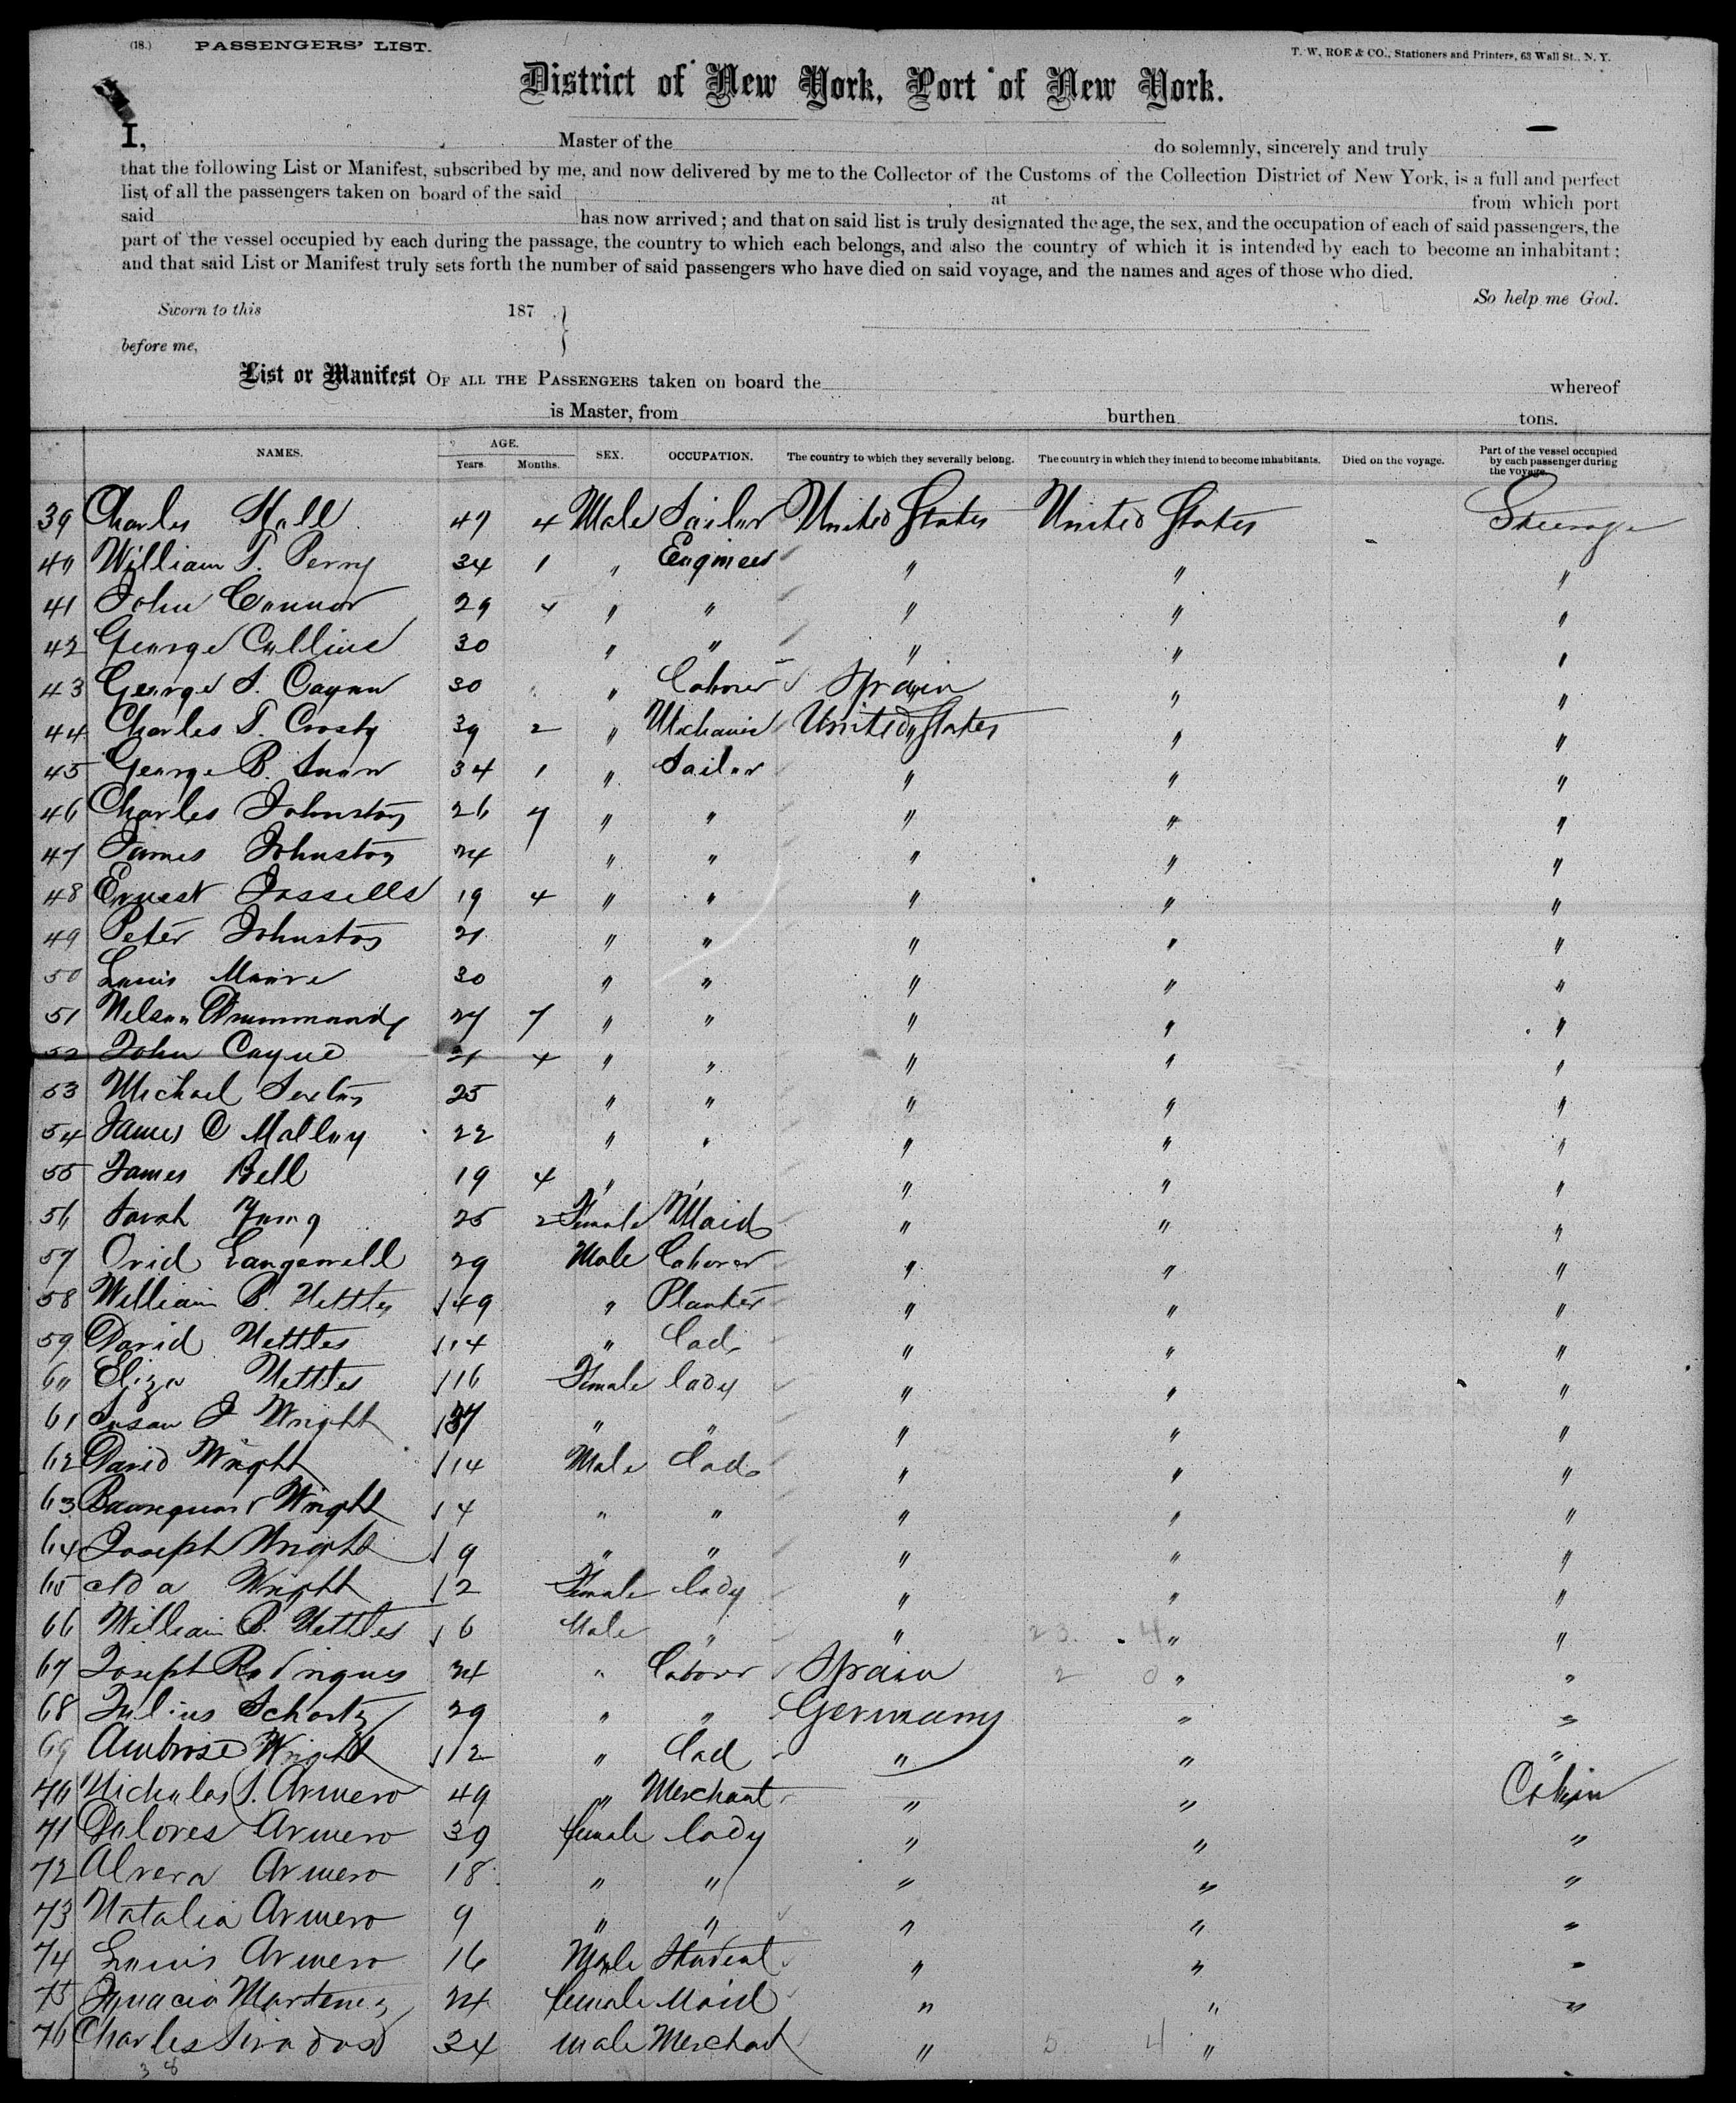 (18.) PASSENGERS' LIST. T. W. ROE & CO., Stationers and Printers, 63 Wall St., N. Y.
District of New York, Port of New York.
I, Master of the do solemnly, sincerely and truly
that the following List or Manifest, subscribed by me, and now delivered by me to the Collector of the Customs of the Collection District of New York, is a full and perfect
list of all the passengers taken on board of the said at from which port
said has now arrived; and that on said list is truly designated the age, the sex, and the occupation of each of said passengers, the
part of the vessel occupied by each during the passage, the country to which each belongs, and also the country of which it is intended by each to become an inhabitant;
and that said List or Manifest truly sets forth the number of said passengers who have died on said voyage, and the names and ages of those who died.
So help me God.
Sworn to this 187
before me,
List or Manifest OF ALL THE PASSENGERS taken on board the whereof
is Master, from burthen tons.
NAMES. AGE. Years. Months. SEX. OCCUPATION. The country to which they severally belong. The country in which they intend to become inhabitants. Died on the voyage. Part of the vessel occupied by each passenger during the voyage.
39 Charles 4 Male Sailor United States United States Steerage
40 William T. Perry 34 1 " Engineer " " "
41 John Connor 29 4 " " " " "
42 George Collins 30 " " " " "
43 George S. 30 " Laborer Spain " "
44 Charles T. Crosby 39 2 " Mechanic United States " "
45 George B. 34 1 " Sailor " " "
46 Charles Johnston 26 7 " " " " "
47 James Johnston 24 " " " " "
48 Ernest 19 4 " " " " "
49 Peter Johnston 21 " " " " "
50 Louis Moore 30 " " " " "
51 Nelson Drummond 27 7 " " " " "
52 John 21 4 " " " " "
53 Michael Sexton 25 " " " " "
54 James O Malloy 22 " " " " "
55 James Bell 19 4 " " " " "
56 Sarah Young 25 2 Female Maid " " "
57 Ovid 29 Male Laborer " " "
58 William B. Nettles 49 " Planter " " "
59 David Nettles 14 " Lad " " "
60 Eliza Nettles 16 Female lady " " "
61 Susan J Wright 37 " " " " "
62 David Wright 14 Male Lad " " "
63 Wright 4 " " " " "
64 Joseph Wright 9 " " " " "
65 Ada Wright 2 Female lady " " "
66 William B. Nettles 6 Male " " 23. 4 " "
67 Joseph Rodrigues 24 " Labour Spain 2 0 " "
68 Julius 29 " " Germany " "
69 Ambrose Wright 12 " Lad " " "
70 Nicholas S. Armero 49 " Merchant " " Cabin
71 Dolores Armero 39 female lady " " "
72 Armero 18 " " " " "
73 Natalia Armero 9 " " " " "
74 Louis Armero 16 Male Student " " "
75 Ignacia Martinez 24 female Maid " " "
76 Charles 34 male Merchant " 5 4 "
38